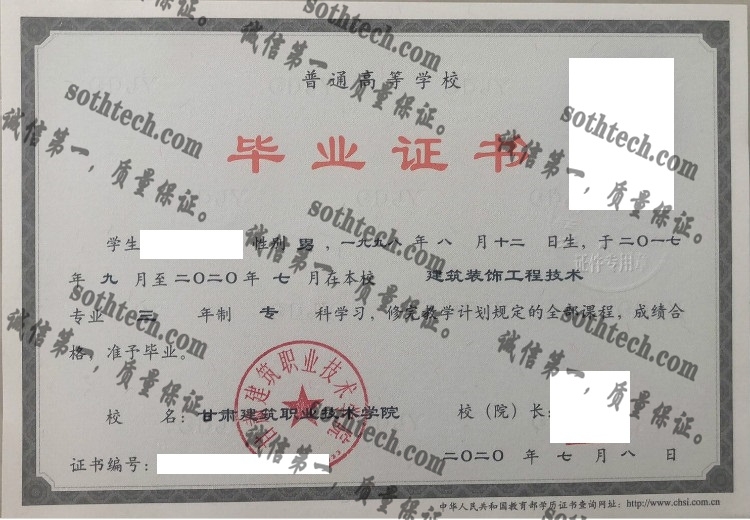 普通高等学校
毕业证书
学生 性别 男 ,一九九八 年 八 月 十二 日生,于二〇一七
年 九 月至二〇二〇年 七 月在本校 建筑装饰工程技术
专业 三 年制 专 科学习,修完教学计划规定的全部课程,成绩合
格,准予毕业。
校 名:甘肃建筑职业技术学院 校(院)长:
证书编号: 二〇二〇 年 七 月 八 日
中华人民共和国教育部学历证书查询网址:http://www.chsi.com.cn
甘肃建筑职业技术学院
证件专用章
sothtech.com
诚信第一,质量保证。
sothtech.com
诚信第一,质量保证。
sothtech.com
诚信第一,质量保证。
sothtech.com
诚信第一,质量保证。
sothtech.com
诚信第一,质量保证。
sothtech.com
诚信第一,质量保证。
sothtech.com
诚信第一,质量保证。
sothtech.com
诚信第一,质量保证。